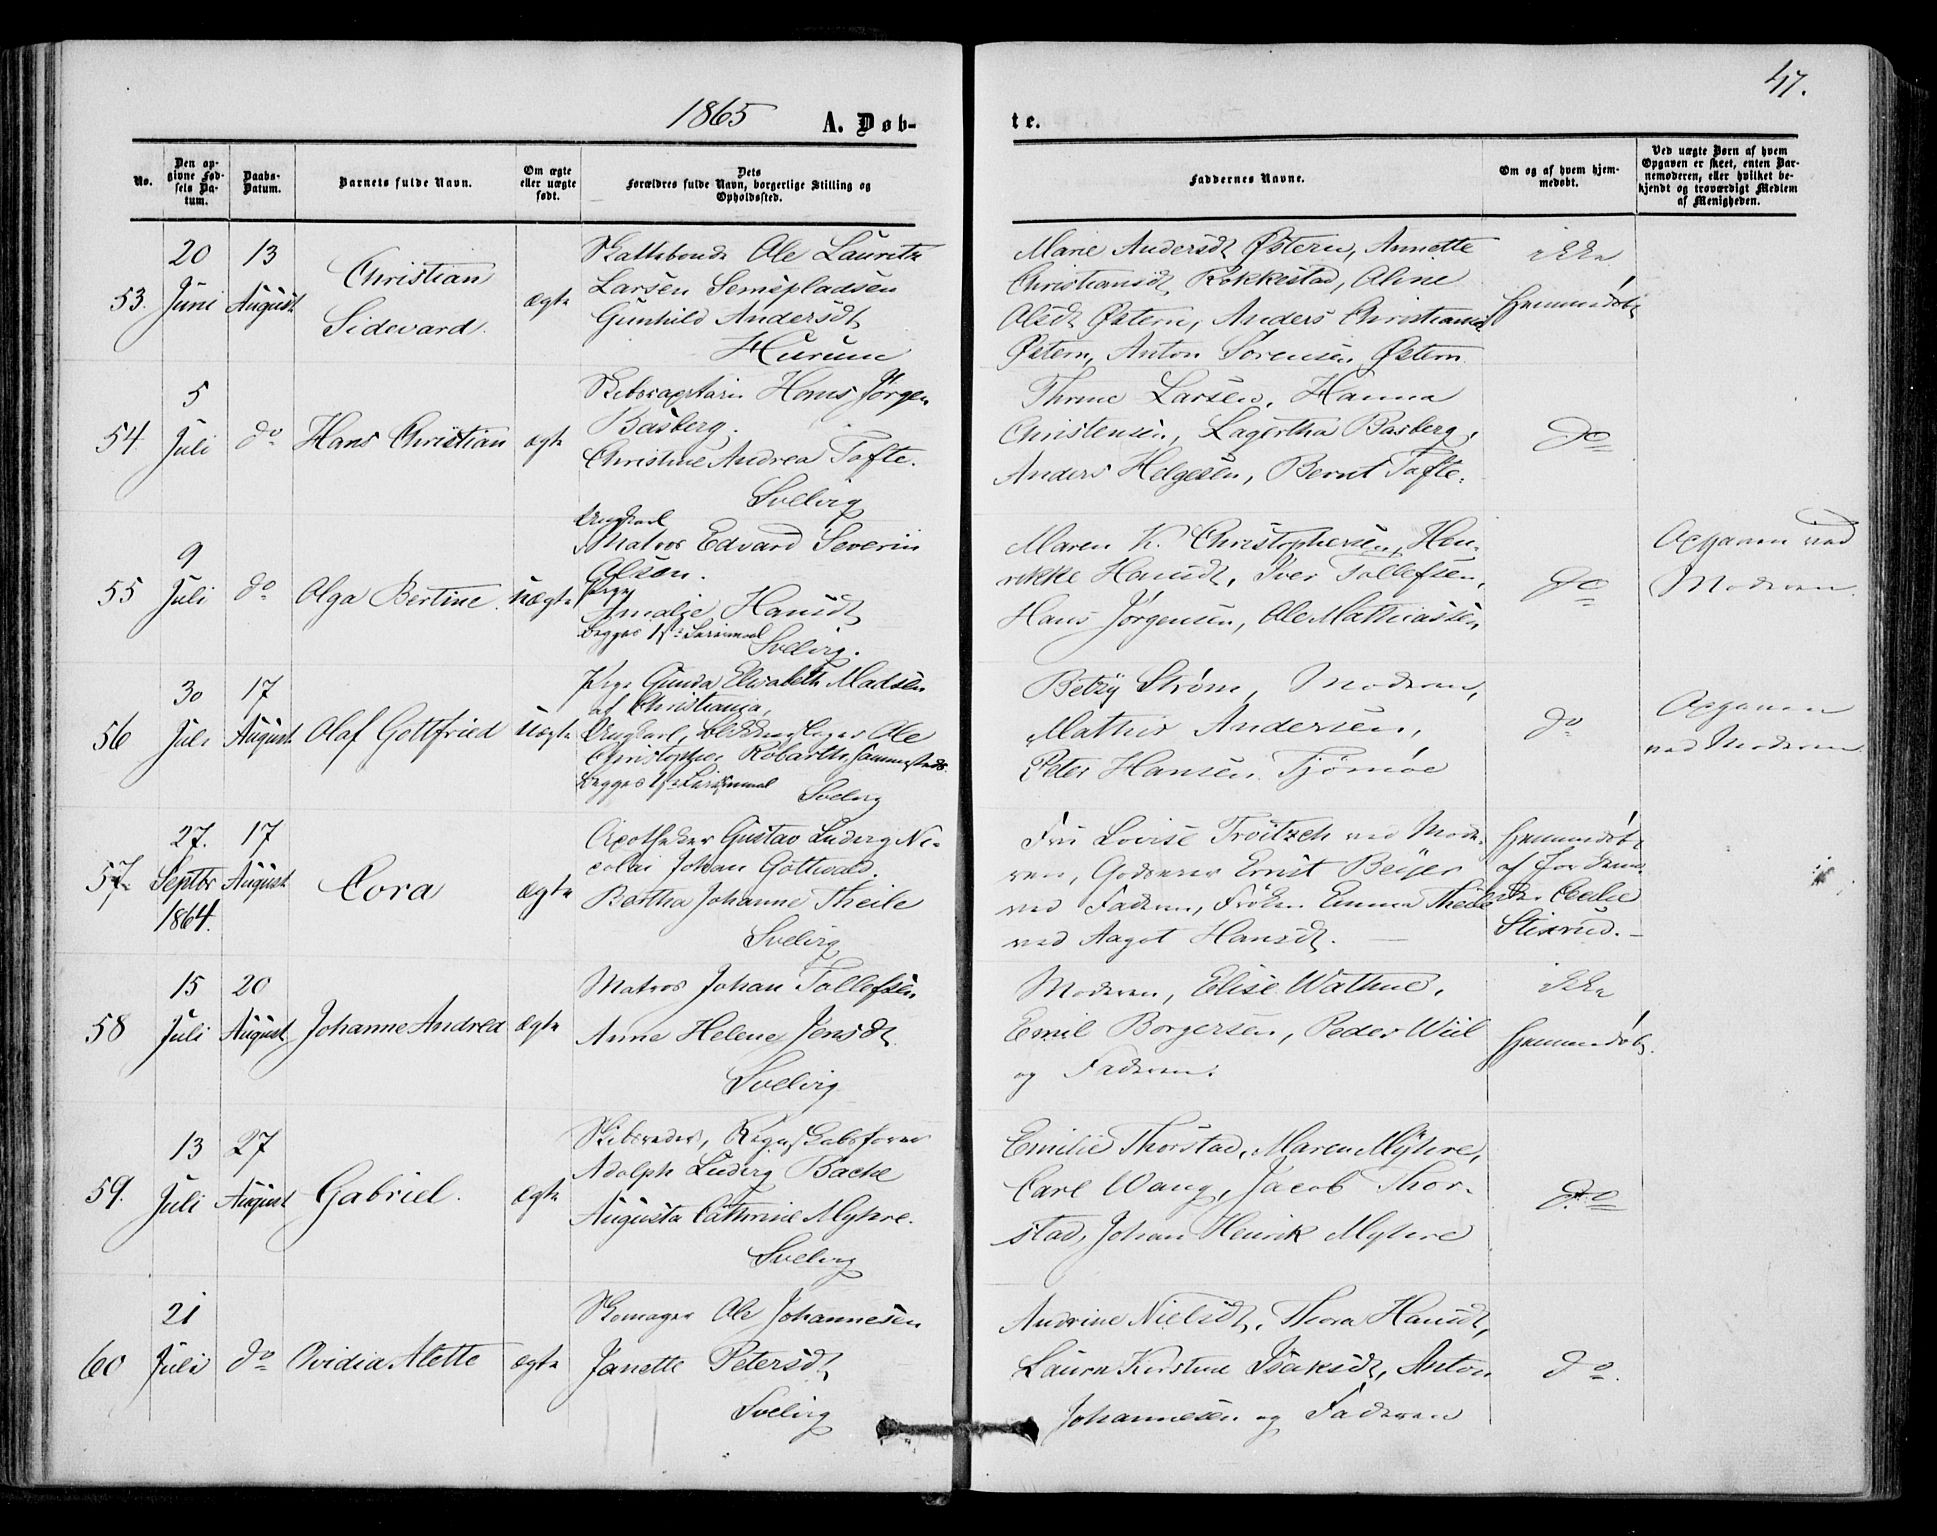 47.
1865 A. Døb- te.
No.
Den opgivne Fødsels Datum.
Daabs-Datum.
Barnets fulde Navn.
Om ægte eller uægte født.
Dets Forældres fulde Navn, borgerlige Stilling og Opholdssted.
Faddernes Navne.
Om og af hvem hjemmedøbt.
Ved uægte Børn af hvem Opgaven er skeet, enten Barnemoderen, eller hvilket bekjendt og troværdigt Medlem af Menigheden.
53. 20 Juni 13 August Christian Sidevard. ægte
Ole Lauritz
Larsen Semspladsen
Gunhild Andersdt
Hurum
Marie Andersdt Østern, Annette
Christiansdt Rokkestad, Aline
Olsdt Østern, Anders Christians
Østern, Anton Sørensen Østern
ikke
hjemmedøbt
54. 5 Juli do Hans Christian ægte
Skibscaptain Hans Jørgen
Basberg.
Christine Andrea Tofte.
Svelvig
Thrine Larsen, Hanna
Christensen, Lagertha Basberg,
Anders Helgesen, Bernt Tofte.
do
55 9 Juli do Olga Bertine. uægte
Ungkarl
Matros Edvard Severin
Olsen.
Pige
Amalie Hansdt
Begges 1ste Leiermaal
Svelvig.
Maren K. Christophersen, Hen-
rikke Hansdt, Iver Tollefsen,
Hans Jørgensen, Ole Mathiassen
do
Opgaven ved
Moderen.
56 30 Juli 17 August Olaf Gottfried uægte
Pige Gunda Elisabeth Madsen
af Christiania,
Ungkarl, Ole
Christopher Robarth sammesteds.
Begges 1ste Leiermaal
Svelvig
Betzy Strøm, Moderen,
Mathis Andersen,
Peter Hansen Tjømøe
do
Opgaven
ved Moderen
57. 27. Septbr 1864. 17 August Cora ægte
Apotheker Gustav Ludvig Ni-
colai Johan Gottwald.
Bertha Johanne Theile
Svelvig
Fru Lovise Troitzch ved Mode-
ren, Godseier Ernst Beijer
ved Faderen, Frøken Emma Theile
ved Aagot Hansdt.
hjemmedøbt
af
Cecilie
Stixrud.
58 15 Juli 20 August Johanne Andrea ægte
Matros Johan Tollefsen
Anne Helene Jensdt
Svelvig
Moderen, Elise Wathne,
Emil Borgersen, Peder Wiil
og Faderen.
ikke
hjemmedøbt.
59. 13 Juli 27 August Gabriel. ægte
Skibsreder, Regnskabsfører
Adolph Ludvig Bache
Augusta Cathrine Myhre.
Svelvig
Emilie Thorstad, Maren Myhre,
Carl Wang, Jacob Thor-
stad, Johan Henrik Myhre
do
60 21 Juli do Ovidia Alette ægte
Skomager Ole Johannesen
Janette Petersdt
Svelvig
Andrine Nielsdt, Thora Hansdt,
Laura Kirstine Isaksdt, Anton
Johannesen og Faderen
do.